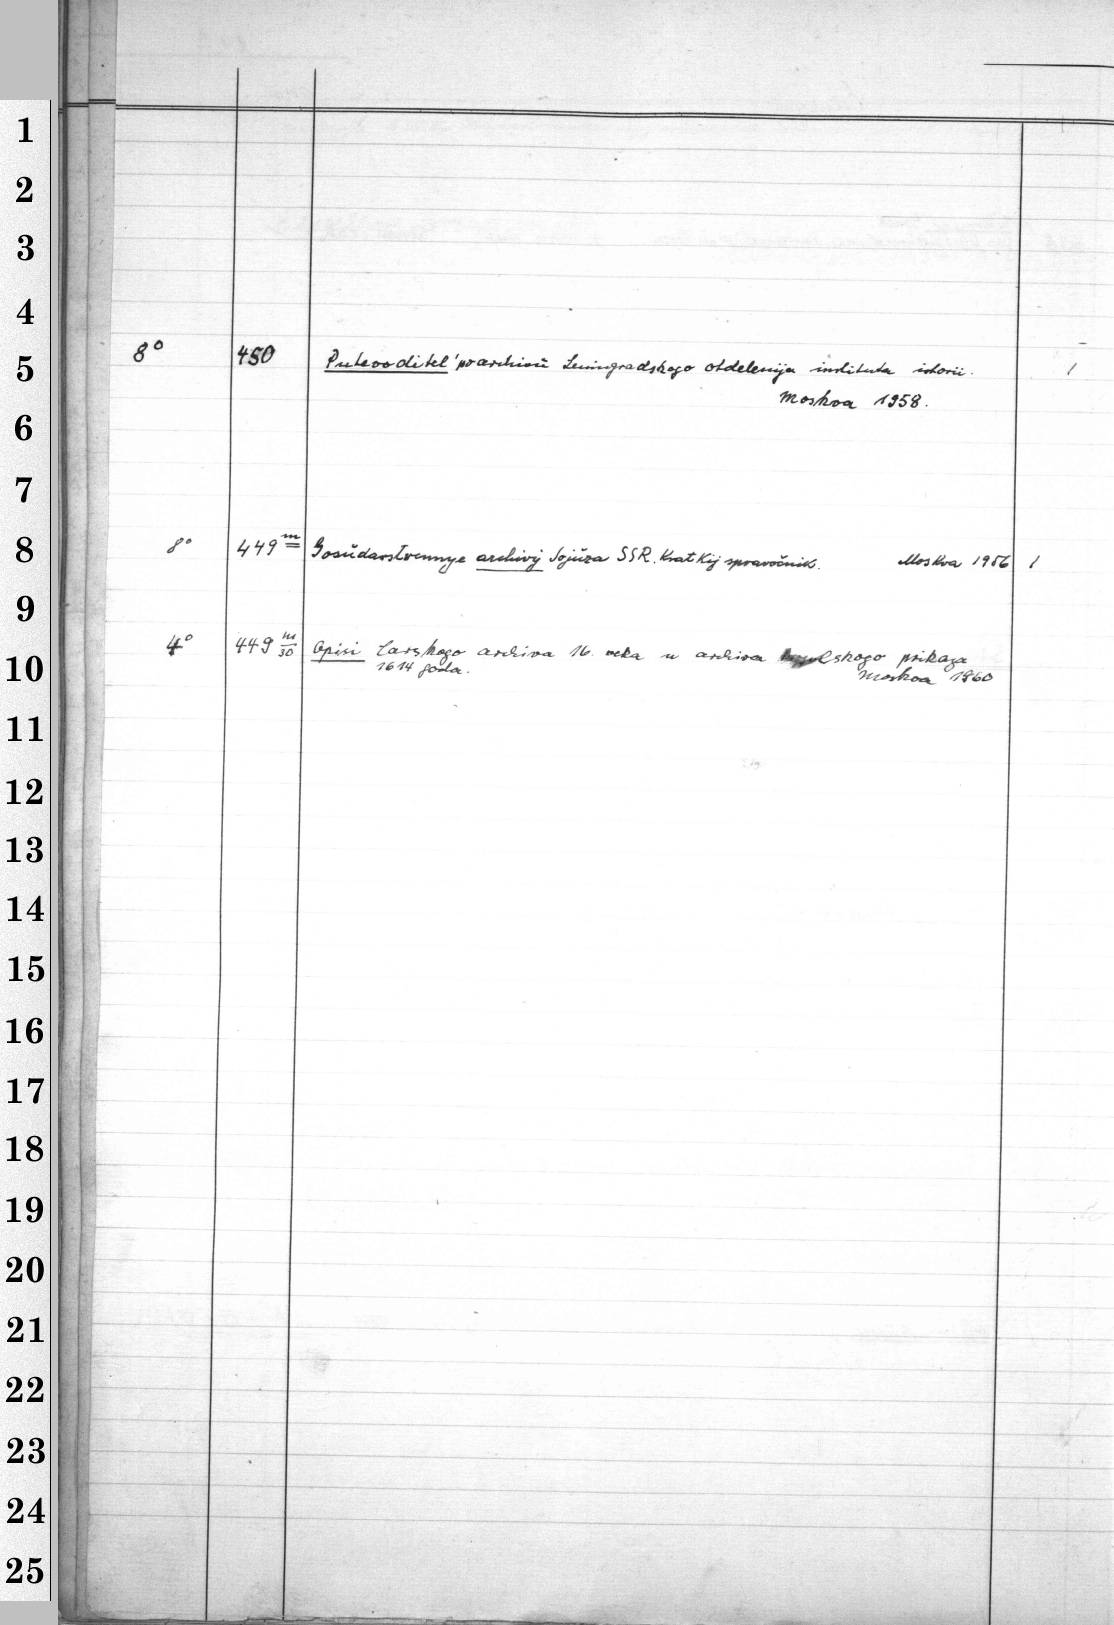 1
2
3
4
8° 450 Putevoditel' po archivü Leningradskogo otdelenija instituta istorii. 1
5
Moskva 1958.
6
7
8° 449 m Gosüdarstvennye archivÿ Sojüza SSR. Kratkij spravočnik. Moskva 1956 1
8
9
4° 449 m/30 Opisi Carskogo archiva 16. veka u archiva prikaza
10
1614 goda. Moskva 1960
11
12
13
14
15
16
17
18
19
20
21
22
23
24
25